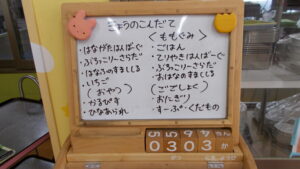 きょうのこんだて
・はながたはんばーぐ
・ぶろっこりーさらだ
・はなふのすましじる
・いちご
（おやつ）
・かるぴす
・ひなあられ
＜ももぐみ＞
・ごはん
・てりやきはんばーぐ
・ぶろっこりーさらだ
・おはなのすましじる
（ごごしょく）
・おにぎり
・すーぷ・くだもの
0303